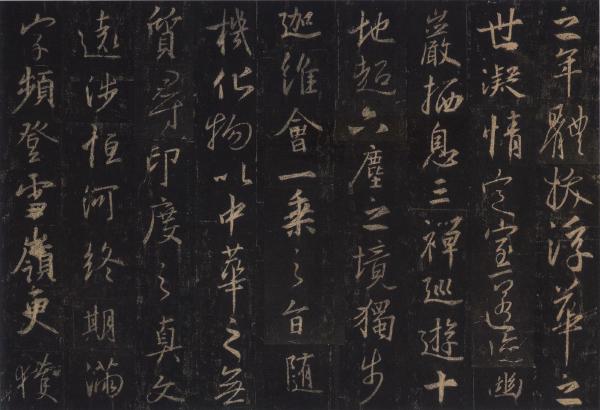 之年體拔浮華之
世凝情定室匿跡幽
巖栖息三禪巡遊十
地超六塵之境獨步
迦維會一乘之旨随
機化物以中華之無
質尋印度之真文
遠涉恒河終期滿
字頻登雪嶺更獲